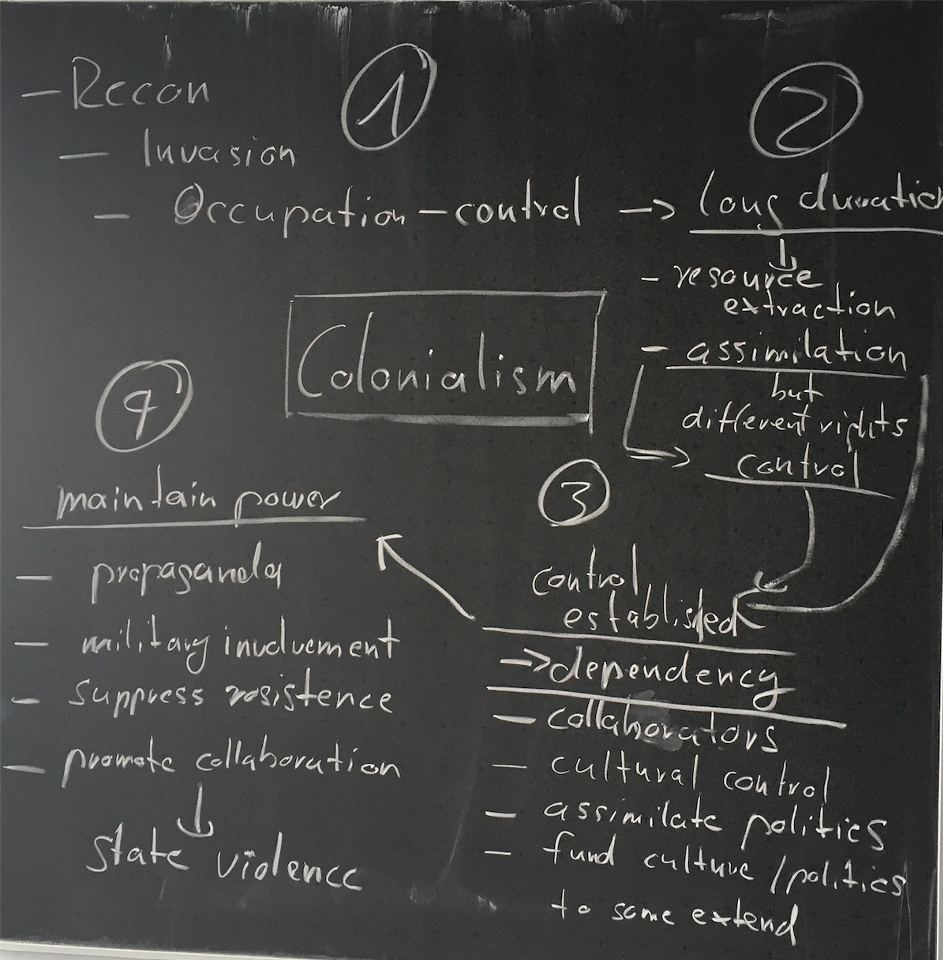 1
- Recon
- Invasion
- Occupation - control → long duration
2
- resource
extraction
- assimilation
but
different rights
control
Colonialism
3
control
established
→ dependency
- collaborators
- cultural control
- assimilate politics
- fund culture / politics
to some extend
4
maintain power
- propaganda
- military involvement
- suppress resistence
- promote collaboration
state violence